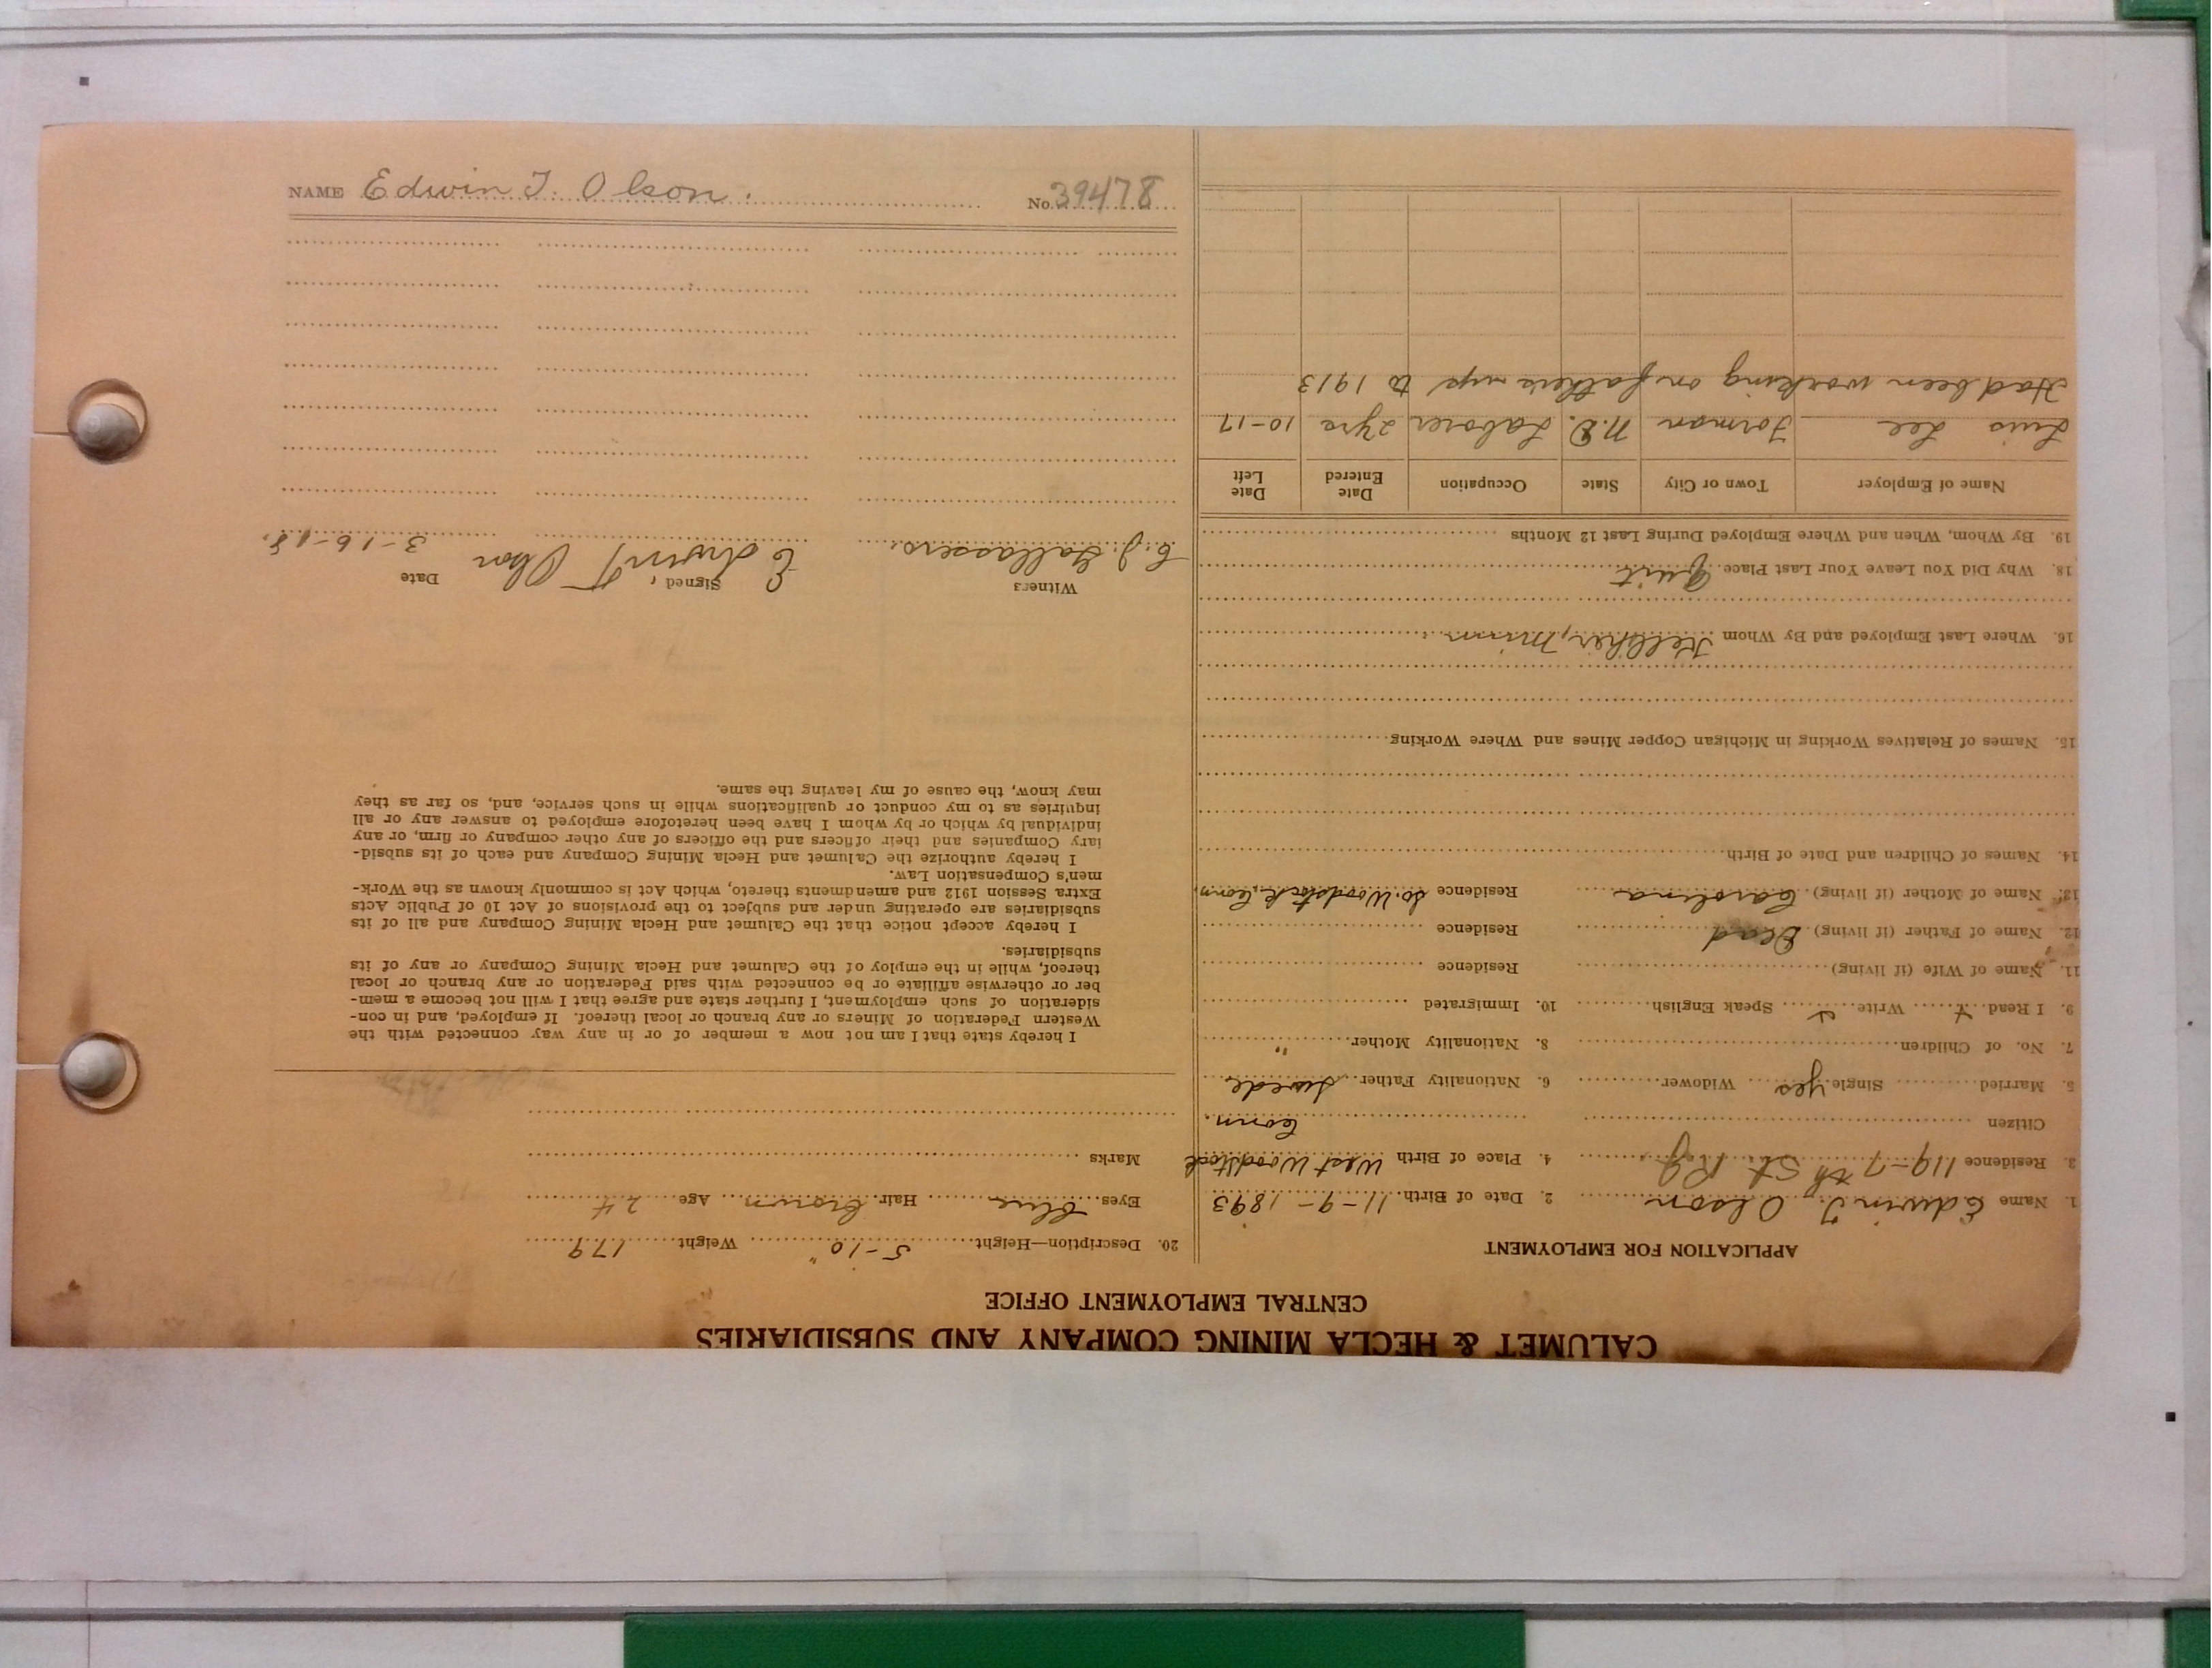 CALUMET & HECLA MINING COMPANY AND SUBSIDIARIES
CENTRAL EMPLOYMENT OFFICE
APPLICATION FOR EMPLOYMENT
1. Name Edwin T. Olson 2. Date of Birth 11-9-1893
3. Residence 119-7th St. 4. Place of Birth West Woodstock
Citizen Conn.
5. Married Single yes Widower 6. Nationality Father Swede
7. No. of Children 8. Nationality Mother "
9. I Read Write Speak English 10. Immigrated
11. Name of Wife (if living) Residence
12. Name of Father (if living) Dead Residence
13. Name of Mother (if living) Carolina Residence So. Woodstock Conn.
14. Names of Children and Date of Birth
15. Names of Relatives Working in Michigan Copper Mines and Where Working
16. Where Last Employed and By Whom Kelliher, Minn
18. Why Did You Leave Your Last Place Quit
19. By Whom, When and Where Employed During Last 12 Months
Name of Employer Town or City State Occupation Date Entered Date Left
Luis Lee Forman N.D. Laborer 2yrs 10-17
Had been working on fathers up to 1913
20. Description—Height 5-10" Weight 179
Eyes Blue Hair Brown Age 24
Marks
I hereby state that I am not now a member of or in any way connected with the
Western Federation of Miners or any branch or local thereof. If employed, and in con-
sideration of such employment, I further state and agree that I will not become a mem-
ber or otherwise affiliate or be connected with said Federation or any branch or local
thereof, while in the employ of the Calumet and Hecla Mining Company or any of its
subsidiaries.
I hereby accept notice that the Calumet and Hecla Mining Company and all of its
subsidiaries are operating under and subject to the provisions of Act 10 of Public Acts
Extra Session 1912 and amendments thereto, which Act is commonly known as the Work-
men's Compensation Law.
I hereby authorize the Calumet and Hecla Mining Company and each of its subsid-
iary Companies and their officers and the officers of any other company or firm, or any
individual by which or by whom I have been heretofore employed to answer any or all
inquiries as to my conduct or qualifications while in such service, and, so far as they
may know, the cause of my leaving the same.
Witness Signed Date
Edwin T Olson 3-16-18.
NAME Edwin T. Olson. No. 39478